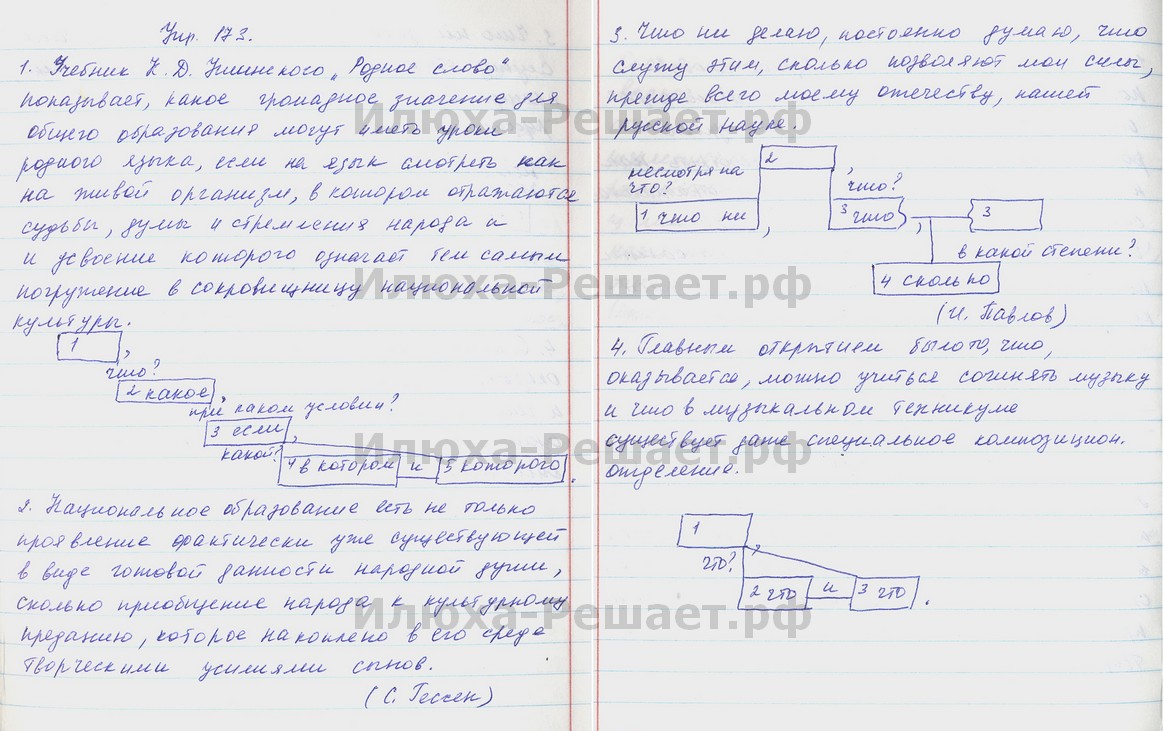 Упр. 173.
1. Учебник К. Д. Ушинского „Родное слово"
показывает, какое громадное значение для
общего образования могут иметь уроки
родного языка, если на язык смотреть как
на живой организм, в котором отражаются
судьбы, думы и стремления народа и
и усвоение которого означает тем самым
погружение в сокровищницу национальной
культуры.
1 ,
что?
2 какое ,
при каком условии?
3 если ,
какой?
4 в котором и 5 которого .
2. Национальное образование есть не только
проявление фактически уже существующей
в виде готовой данности народной души,
сколько приобщение народа к культурному
преданию, которое накоплено в его среде
творческими усилиями сынов.
(С. Гессен)
3. Что ни делаю, постоянно думаю, что
служу этим, сколько позволяют мои силы,
прежде всего моему отечеству, нашей
русской науке.
2 ,
несмотря на
что?
что?
1 что ни , 3 что , 3
в какой степени?
4 сколько
(И. Павлов)
4. Главным открытием было то, что,
оказывается, можно учиться сочинять музыку
и что в музыкальном техникуме
существует даже специальное композицион.
отделение.
1 ,
что?
2 что и 3 что .
Илюха-Решает.рф
Илюха-Решает.рф
Илюха-Решает.рф
Илюха-Решает.рф